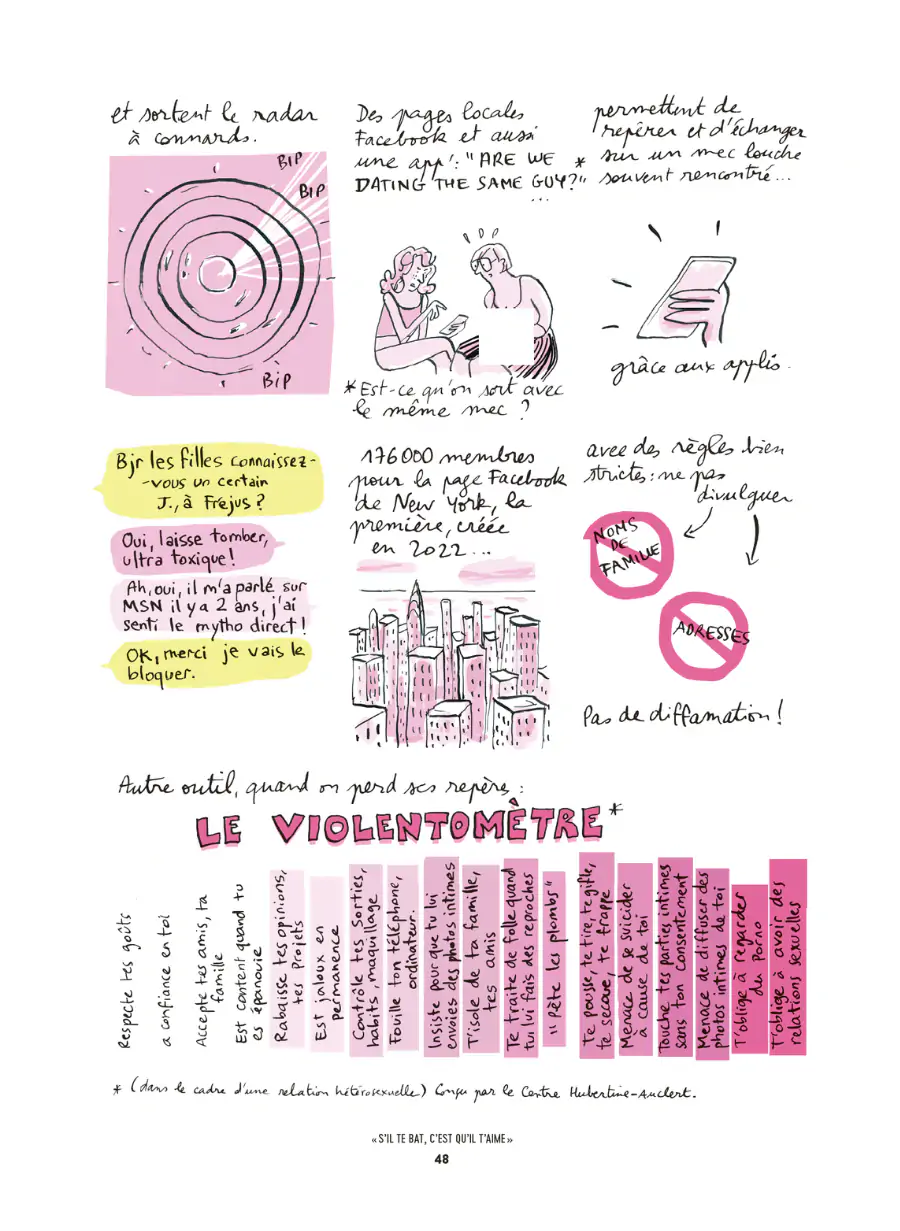 et sortent le radar
à connards.
BIP
BIP
BIP
Des pages locales
Facebook et aussi
une app': "ARE WE *
DATING THE SAME GUY?"
...
*Est-ce qu'on sort avec
le même mec ?
permettent de
repérer et d'échanger
sur un mec louche
souvent rencontré...
grâce aux applis.
Bjr les filles connaissez-
-vous un certain
J., à Fréjus ?
Oui, laisse tomber,
ultra toxique !
Ah, oui, il m'a parlé sur
MSN il y a 2 ans, j'ai
senti le mytho direct !
OK, merci je vais le
bloquer.
176000 membres
pour la page Facebook
de New York, la
première, créée
en 2022...
avec des règles bien
strictes : ne pas
divulguer
NOMS
DE
FAMILLE
ADRESSES
Pas de diffamation !
Autre outil, quand on perd ses repères :
LE VIOLENTOMÈTRE*
Respecte tes goûts
a confiance en toi
Accepte tes amis, ta
famille
Est content quand tu
es épanouie
Rabaisse tes opinions,
tes projets
Est jaloux en
permanence
Contrôle tes sorties,
habits, maquillage
Fouille ton téléphone,
ordinateur.
Insiste pour que tu lui
envoies des photos intimes
T'isole de ta famille,
tes amis
Te traite de folle quand
tu lui fais des reproches
"Pète les plombs"
Te pousse, te tire, te gifle,
te secoue, te frappe
Menace de se suicider
à cause de toi
Touche tes parties intimes
sans ton consentement
Menace de diffuser des
photos intimes de toi
T'oblige à regarder
du Porno
T'oblige à avoir des
relations sexuelles
* (dans le cadre d'une relation hétérosexuelle) Conçu par le Centre Hubertine-Auclert.
« S'IL TE BAT, C'EST QU'IL T'AIME »
48